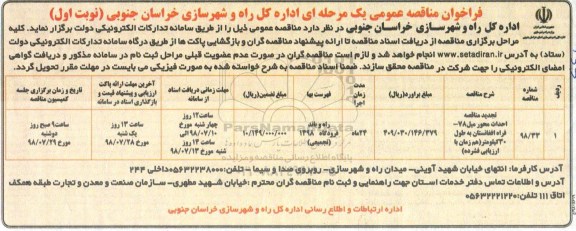 فراخوان مناقصه عمومی یک مرحله ای اداره کل راه و شهرسازی خراسان جنوبی (نوبت اول)
اداره کل راه و شهرسازی خراسان جنوبی در نظر دارد مناقصه عمومی ذیل را از طریق سامانه تدارکات الکترونیکی دولت برگزار نماید. کلیه
مراحل برگزاری مناقصه از دریافت اسناد مناقصه تا ارائه پیشنهاد مناقصه گران و بازگشایی پاکت ها از طریق درگاه سامانه تدارکات الکترونیکی دولت
(ستاد) به آدرس www.setadiran.ir انجام خواهد شد و لازم است مناقصه گران در صورت عدم عضویت قبلی مراحل ثبت نام در سامانه مذکور و دریافت گواهی
امضای الکترونیکی را جهت شرکت در مناقصه محقق سازند. ضمناً اسناد مناقصه به شرح خواسته شده به صورت فیزیکی می بایست در مهلت مقرر تحویل گردد.
ردیف | شماره مناقصه | شرح مناقصه | مبلغ برآورد(ریال) | مدت اجرا | فهرست بها | مبلغ تضمین(ریال) | مهلت زمانی دریافت اسناد از سامانه | آخرین مهلت ارائه پاکت ارزیابی و پیشنهاد قیمت و بارگذاری اسناد در سامانه | تاریخ و زمان برگزاری جلسه کمیسیون مناقصه
۱ | ۹۸/۳۳ | تجدید مناقصه احداث محور میل۷۸- فراه افغانستان به طول ۳۰کیلومتر(هم زمان با ارزیابی فشرده) | ۴۰۹/۰۳۰/۱۴۶/۳۷۹ | ۲۴ماه | راه و باند فرودگاه ۱۳۹۸ (تجمیعی) | ۱۰/۱۴۹/۰۰۰/۰۰۰ | ساعت۱۲ روز چهار شنبه مورخ ۹۸/۰۷/۱۰ الی ساعت ۱۳ روز شنبه مورخ ۹۸/۰۷/۱۳ | ساعت ۱۳ روز یک شنبه مورخ ۹۸/۰۷/۲۸ | ساعت۹ صبح روز دوشنبه مورخ ۹۸/۰۷/۲۹
آدرس کارفرما: انتهای خیابان شهید آوینی- میدان راه و شهرسازی- روبروی صدا و سیما - تلفن:۰۵۶۳۲۲۳۸۰۰۰داخلی ۲۴۴
آدرس و اطلاعات تماس دفتر خدمات استان جهت راهنمایی و ثبت نام مناقصه گران محترم :خیابان شهید مطهری- سازمان صنعت و معدن و تجارت طبقه همکف
اتاق ۱۰۱ تلفن:۰۵۶۳۲۲۲۱۲۲۰
اداره ارتباطات و اطلاع رسانی اداره کل راه و شهرسازی خراسان جنوبی